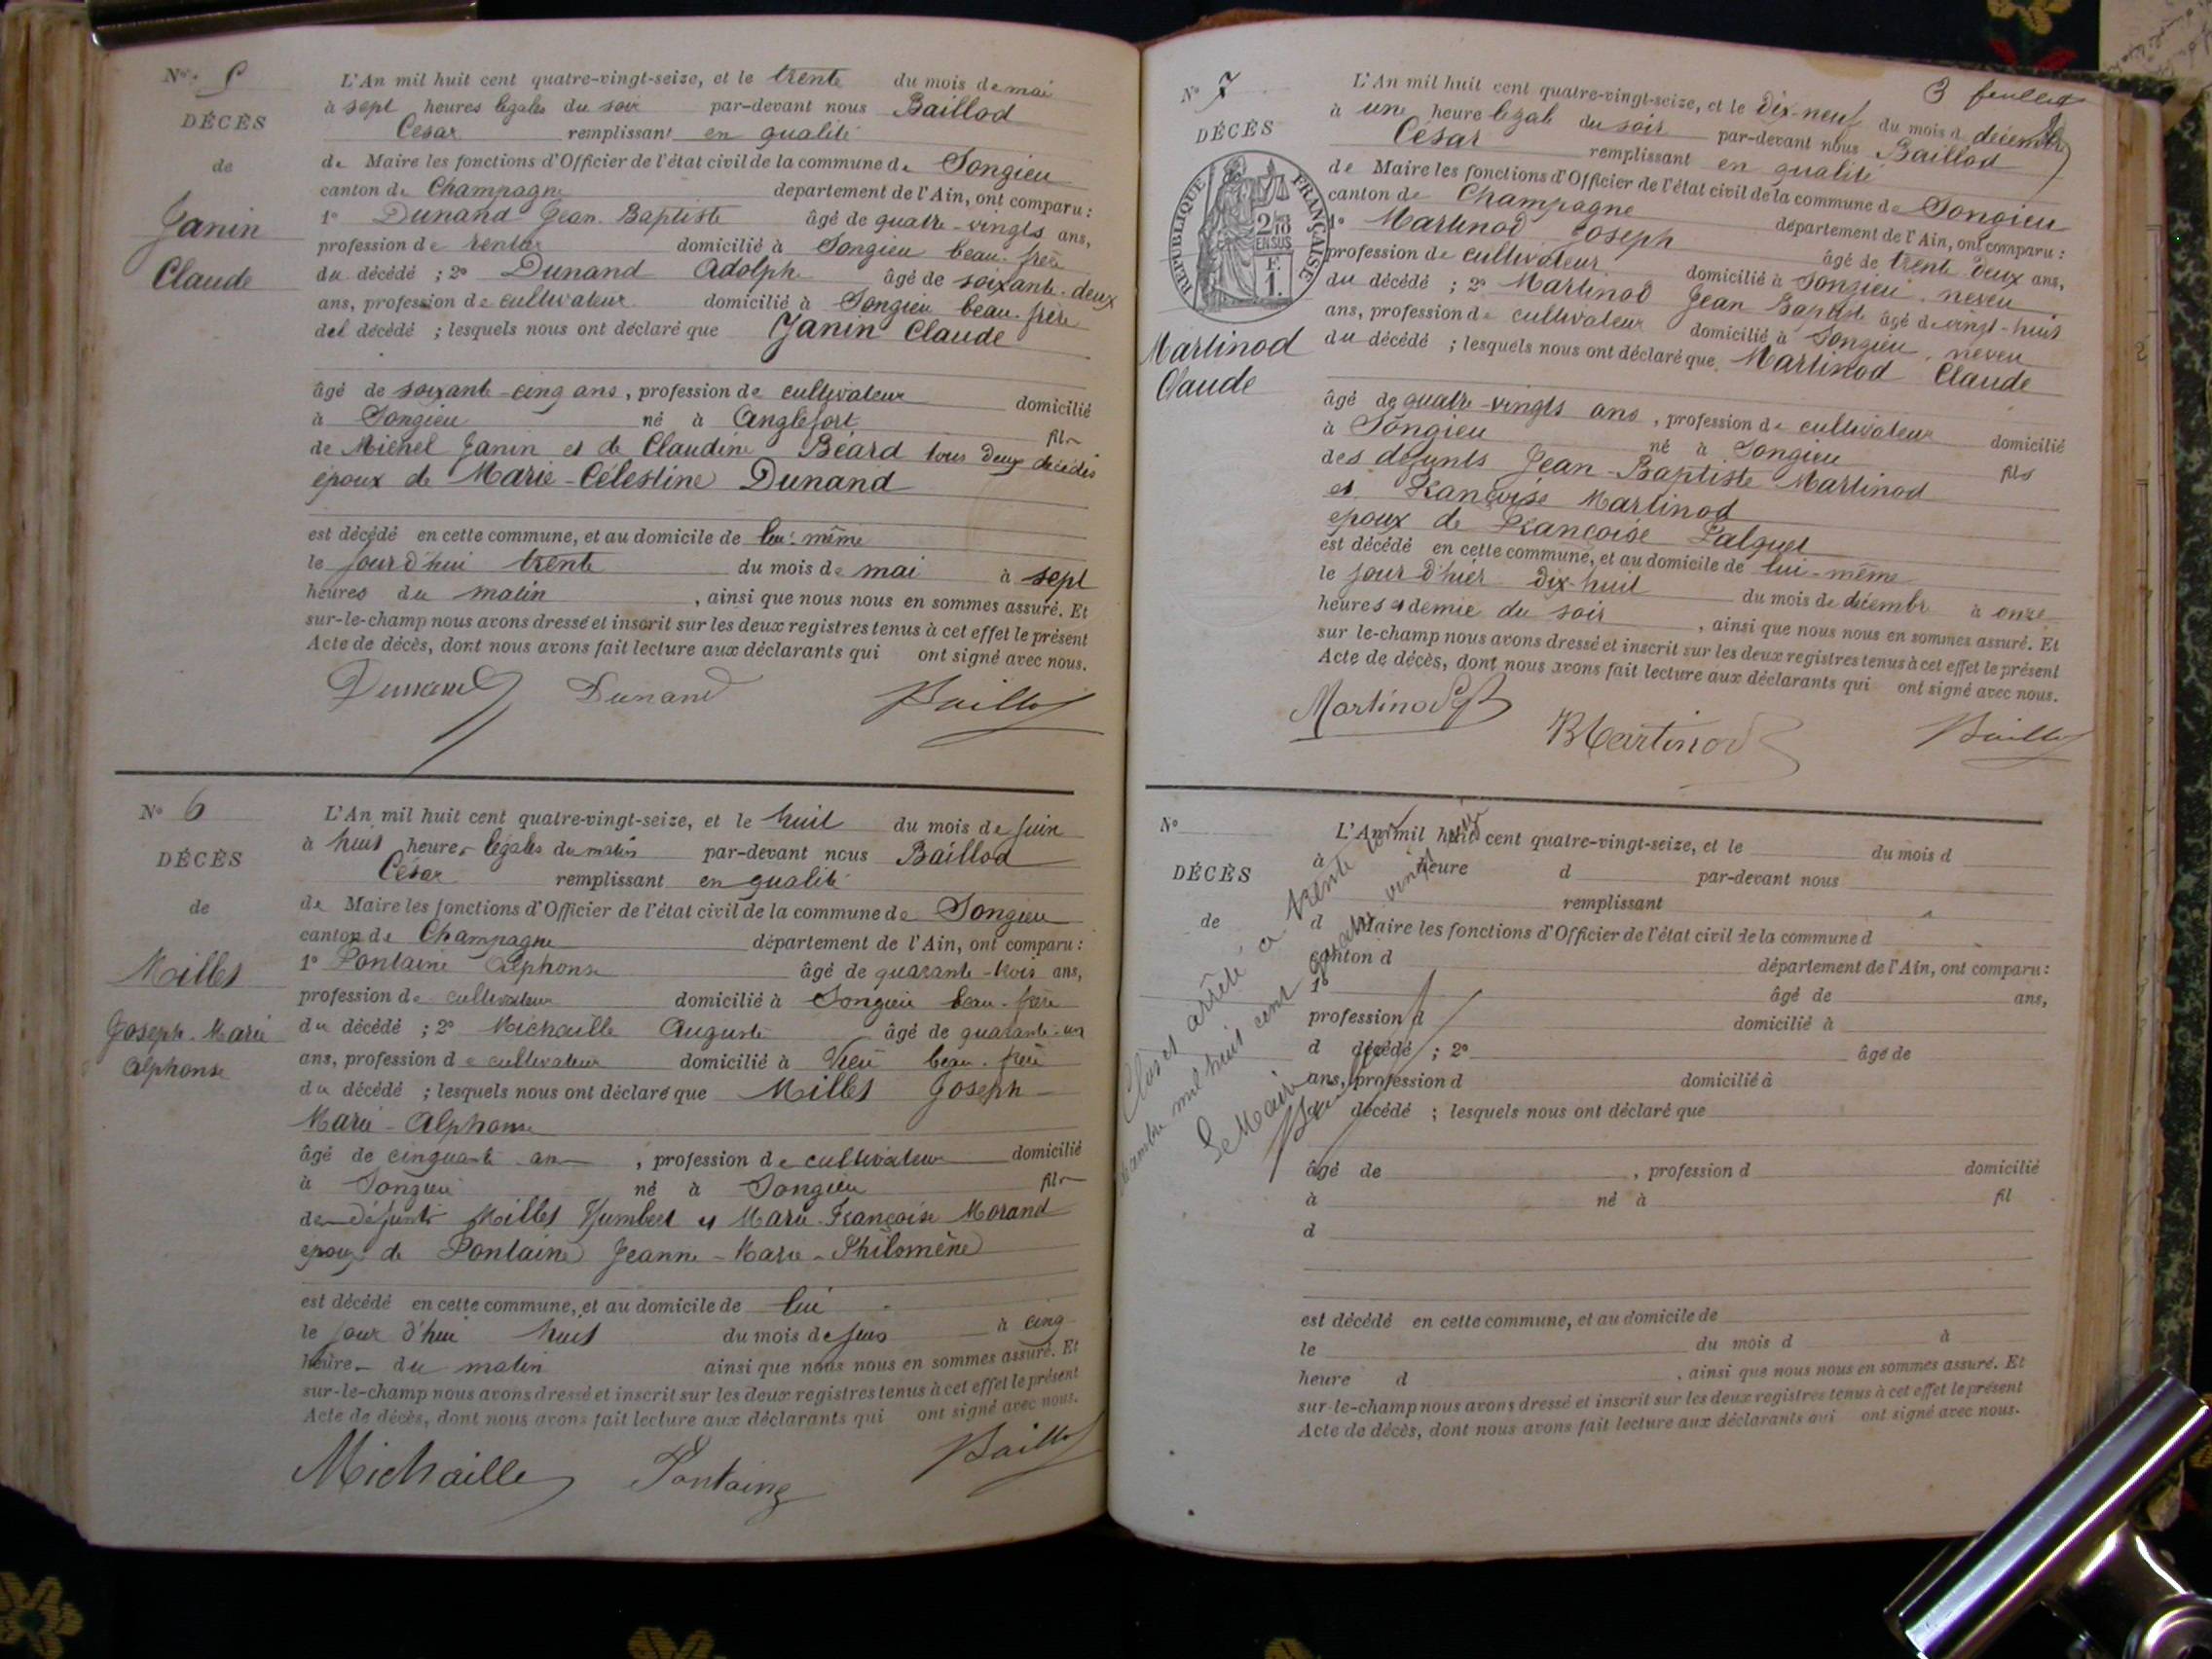 No. 5
DÉCÈS
de
Janin
Claude
L'An mil huit cent quatre-vingt-seize, et le trente du mois de mai
à sept heures légales du soir par-devant nous Baillod
César remplissant en qualité
de Maire les fonctions d'Officier de l'état civil de la commune de Songieu
canton de Champagne département de l'Ain, ont comparu :
1° Dunand Jean-Baptiste âgé de quatre-vingts ans,
profession de rentier domicilié à Songieu beau-frère
du décédé ; 2° Dunand Adolphe âgé de soixante-deux
ans, profession de cultivateur domicilié à Songieu beau-frère
du décédé ; lesquels nous ont déclaré que Janin Claude
âgé de soixante-cinq ans, profession de cultivateur domicilié
à Songieu né à Anglefort fils
de Michel Janin et de Claudine Béard tous deux décédés
époux de Marie-Célestine Dunand
est décédé en cette commune, et au domicile de lui-même
le jour d'hui trente du mois de mai à sept
heures du matin, ainsi que nous nous en sommes assuré. Et
sur-le-champ nous avons dressé et inscrit sur les deux registres tenus à cet effet le présent
Acte de décès, dont nous avons fait lecture aux déclarants qui ont signé avec nous.
Dunand Dunand Baillod
No 6
DÉCÈS
de
Millet
Joseph-Marie
Alphonse
L'An mil huit cent quatre-vingt-seize, et le huit du mois de juin
à huit heures légales du matin par-devant nous Baillod
César remplissant en qualité
de Maire les fonctions d'Officier de l'état civil de la commune de Songieu
canton de Champagne département de l'Ain, ont comparu :
1° Pontaine Alphonse âgé de quarante-trois ans,
profession de cultivateur domicilié à Songieu beau-frère
du décédé ; 2° Michaille Auguste âgé de quarante-un
ans, profession de cultivateur domicilié à Vieu beau-frère
du décédé ; lesquels nous ont déclaré que Millet Joseph
Marie-Alphonse
âgé de cinquante ans, profession de cultivateur domicilié
à Songieu né à Songieu fils
des défunts Millet Humbert et Marie-Françoise Morand
époux de Pontaine Jeanne-Marie-Philomène
est décédé en cette commune, et au domicile de lui
le jour d'hui huit du mois de juin à cinq
heures du matin ainsi que nous nous en sommes assuré. Et
sur-le-champ nous avons dressé et inscrit sur les deux registres tenus à cet effet le présent
Acte de décès, dont nous avons fait lecture aux déclarants qui ont signé avec nous.
Michaille Pontaine Baillod
3 feuillet
No 7
DÉCÈS
RÉPUBLIQUE FRANÇAISE
2/10 EN SUS
1 F.
Martinod
Claude
L'An mil huit cent quatre-vingt-seize, et le dix-neuf du mois d décembre
à une heure légale du soir par-devant nous Baillod
César remplissant en qualité
de Maire les fonctions d'Officier de l'état civil de la commune de Songieu
canton de Champagne département de l'Ain, ont comparu :
1° Martinod Joseph âgé de trente-deux ans,
profession de cultivateur domicilié à Songieu, neveu
du décédé ; 2° Martinod Jean Baptiste âgé de vingt-huit
ans, profession de cultivateur domicilié à Songieu, neveu
du décédé ; lesquels nous ont déclaré que Martinod Claude
âgé de quatre-vingts ans, profession de cultivateur domicilié
à Songieu né à Songieu fils
des défunts Jean-Baptiste Martinod
et Françoise Martinod
époux de Françoise
est décédé en cette commune, et au domicile de lui-même
le jour d'hier dix-huit du mois de décembre à onze
heures et demie du soir, ainsi que nous nous en sommes assuré. Et
sur le-champ nous avons dressé et inscrit sur les deux registres tenus à cet effet le présent
Acte de décès, dont nous avons fait lecture aux déclarants qui ont signé avec nous.
Martinod JB Martinod Baillod
No
DÉCÈS
de
L'An mil huit cent quatre-vingt-seize, et le du mois d
à heure d par-devant nous
remplissant
d Maire les fonctions d'Officier de l'état civil de la commune d
canton d département de l'Ain, ont comparu :
1° âgé de ans,
profession d domicilié à
d décédé ; 2° âgé de
ans, profession d domicilié à
d décédé ; lesquels nous ont déclaré que
âgé de , profession d domicilié
à né à fil
d
est décédé en cette commune, et au domicile de
le du mois d à
heure d , ainsi que nous nous en sommes assuré. Et
sur-le-champ nous avons dressé et inscrit sur les deux registres tenus à cet effet le présent
Acte de décès, dont nous avons fait lecture aux déclarants qui ont signé avec nous.
Clos et arrêté à trente un
décembre mil huit cent quatre vingt seize
Le Maire
Baillod